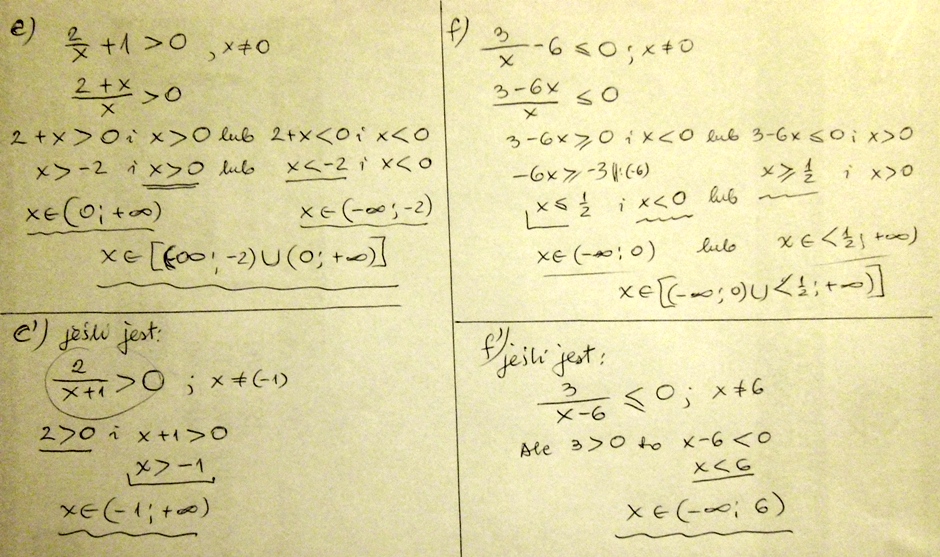 e) 2/x + 1 > 0 , x ≠ 0
(2 + x)/x > 0
2 + x > 0 i x > 0 lub 2+x < 0 i x < 0
x > -2 i x > 0 lub x < -2 i x < 0
x ∈ (0; +∞) x ∈ (-∞; -2)
x ∈ [(-∞; -2) ∪ (0; +∞)]
f) 3/x - 6 ≤ 0 ; x ≠ 0
(3 - 6x)/x ≤ 0
3 - 6x ≥ 0 i x < 0 lub 3 - 6x ≤ 0 i x > 0
-6x ≥ -3 ||:(-6) x ≥ 1/2 i x > 0
x ≤ 1/2 i x < 0 lub
x ∈ (-∞; 0) lub x ∈ <1/2; +∞)
x ∈ [(-∞; 0) ∪ <1/2; +∞)]
e') jeśli jest:
2/(x+1) > 0 ; x ≠ (-1)
2 > 0 i x+1 > 0
x > -1
x ∈ (-1; +∞)
f') jeśli jest:
3/(x-6) ≤ 0 ; x ≠ 6
Ale 3 > 0 to x-6 < 0
x < 6
x ∈ (-∞; 6)